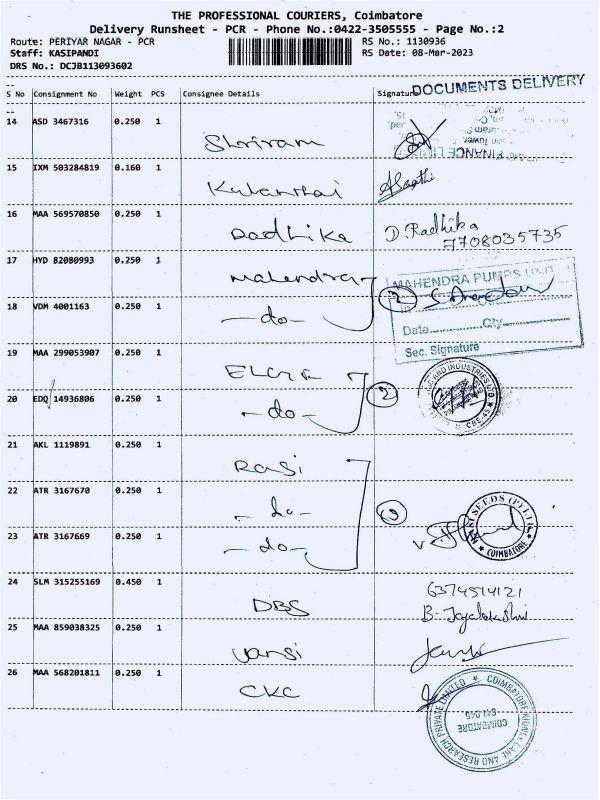 THE PROFESSIONAL COURIERS, Coimbatore
Delivery Runsheet - PCR - Phone No.:0422-3505555 - Page No.:2
Route: PERIYAR NAGAR - PCR RS No.: 1130936
Staff: KASIPANDI RS Date: 08-Mar-2023
DRS No.: DCJB113093602
DOCUMENTS DELIVERY
S No Consignment No Weight PCS Consignee Details Signature
14 ASD 3467316 0.250 1 Shriram
FINANCE
15 IXM 503284819 0.160 1 Kulanthai
16 MAA 569570850 0.250 1 Radhika D Radhika
7708035735
17 HYD 82080993 0.250 1 Mahendra
MAHENDRA PUMPS
18 VDM 4001163 0.250 1 -do- 2
Date Qty
Sec. Signature
19 MAA 299053907 0.250 1 ELGI
20 EDQ 14936806 0.250 1 -do- 2
INDUSTRIES LTD
CBE-45
21 AKL 1119891 0.250 1 Rasi
22 ATR 3167670 0.250 1 -do- 3
RASI SEEDS (P) LTD
COIMBATORE
23 ATR 3167669 0.250 1 -do-
24 SLM 315255169 0.450 1 DBS 6374514121
25 MAA 859038325 0.250 1 Vansi
26 MAA 568201811 0.250 1 CKC
COIMBATORE KIDNEY CARE AND RESEARCH PRIVATE LIMITED
COIMBATORE
641 045